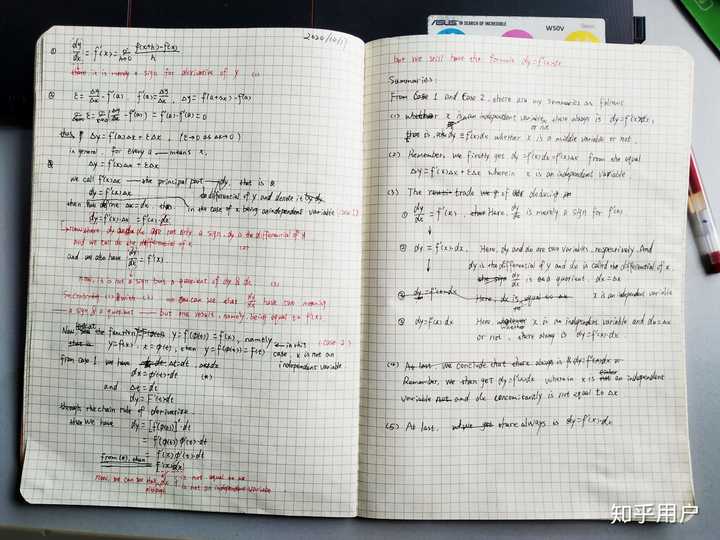 ASUS IN SEARCH OF INCREDIBLE
W50V
① dy/dx = f'(x) = lim h→0 f(x+h)-f(x) / h
a sign for derivative of y (1)
② ε = Δy/Δx - f'(a), f'(a) = Δy/Δx, Δy = f(a+Δx)-f(a)
thus, Δy = f'(a)Δx + εΔx, (ε→0 as Δx→0)
in general, for every a — means x,
Δy = f'(x)Δx + εΔx
we call f'(x)Δx — the principal part — dy, that is
dy = f'(x)Δx
differential of y and denote it by dy
then define Δx = dx then in the case of x being an independent variable (case 1)
dy = f'(x)Δx = f'(x)·dx
are not only a sign, dy is the differential of y
and we call dx the differential of x
and we also have dy/dx = f'(x)
Now, is not a sign but a quotient of dy & dx (2)
we can see that dy/dx have two meaning
— a sign & a quotient — but the result, namely being equal to f'(x)
the function y = f(φ(t)) = F(t), namely
y = f(x), x = φ(t), then y = f(φ(t)) = F(t)
in this case, x is not an independent variable (case 2)
from case 1 we have Δt = dt,
dx = φ'(t)·dt (*)
and Δt = dt
dy = F'(t)·dt
through the chain rule of derivative
then we have dy = [f(φ(t))]'·dt
= f'(φ(t))·φ'(t)·dt
= f'(x)·φ'(t)·dt
from (*), then = f'(x)·dx
Now, we can see that dx is not equal to Δx
x is not an independent variable
but we still have the formula dy = f'(x)·dx
Summaries:
From Case 1 and Case 2, there are my summaries as follows
(1) whether x is an independent variable or not, there always is dy = f'(x)dx,
that is, dy = f'(x)dx whether x is a middle variable or not.
(2) Remember, we firstly get dy = f'(x)dx = f'(x)Δx from the equal
Δy = f'(x)Δx + εΔx wherein x is an independent variable
(3) The trade of deducing
① dy/dx = f'(x), Here, dy/dx is merely a sign for f'(x)
② dy = f'(x)·dx, Here, dy and dx are two variables, respectively. And
dy is the differential of y and dx is called the differential of x
dy/dx is a quotient. dx = Δx
x is an independent variable
③ dy = f'(x)·dx Here, whether x is an independent variable and dx = Δx
or not, there always is dy = f'(x)·dx
(4) we conclude that
Remember, we then get dy = f'(x)dx wherein x is an independent
variable and dx concomitantly is not equal to Δx
(5) At last, there always is dy = f'(x)·dx
知乎用户